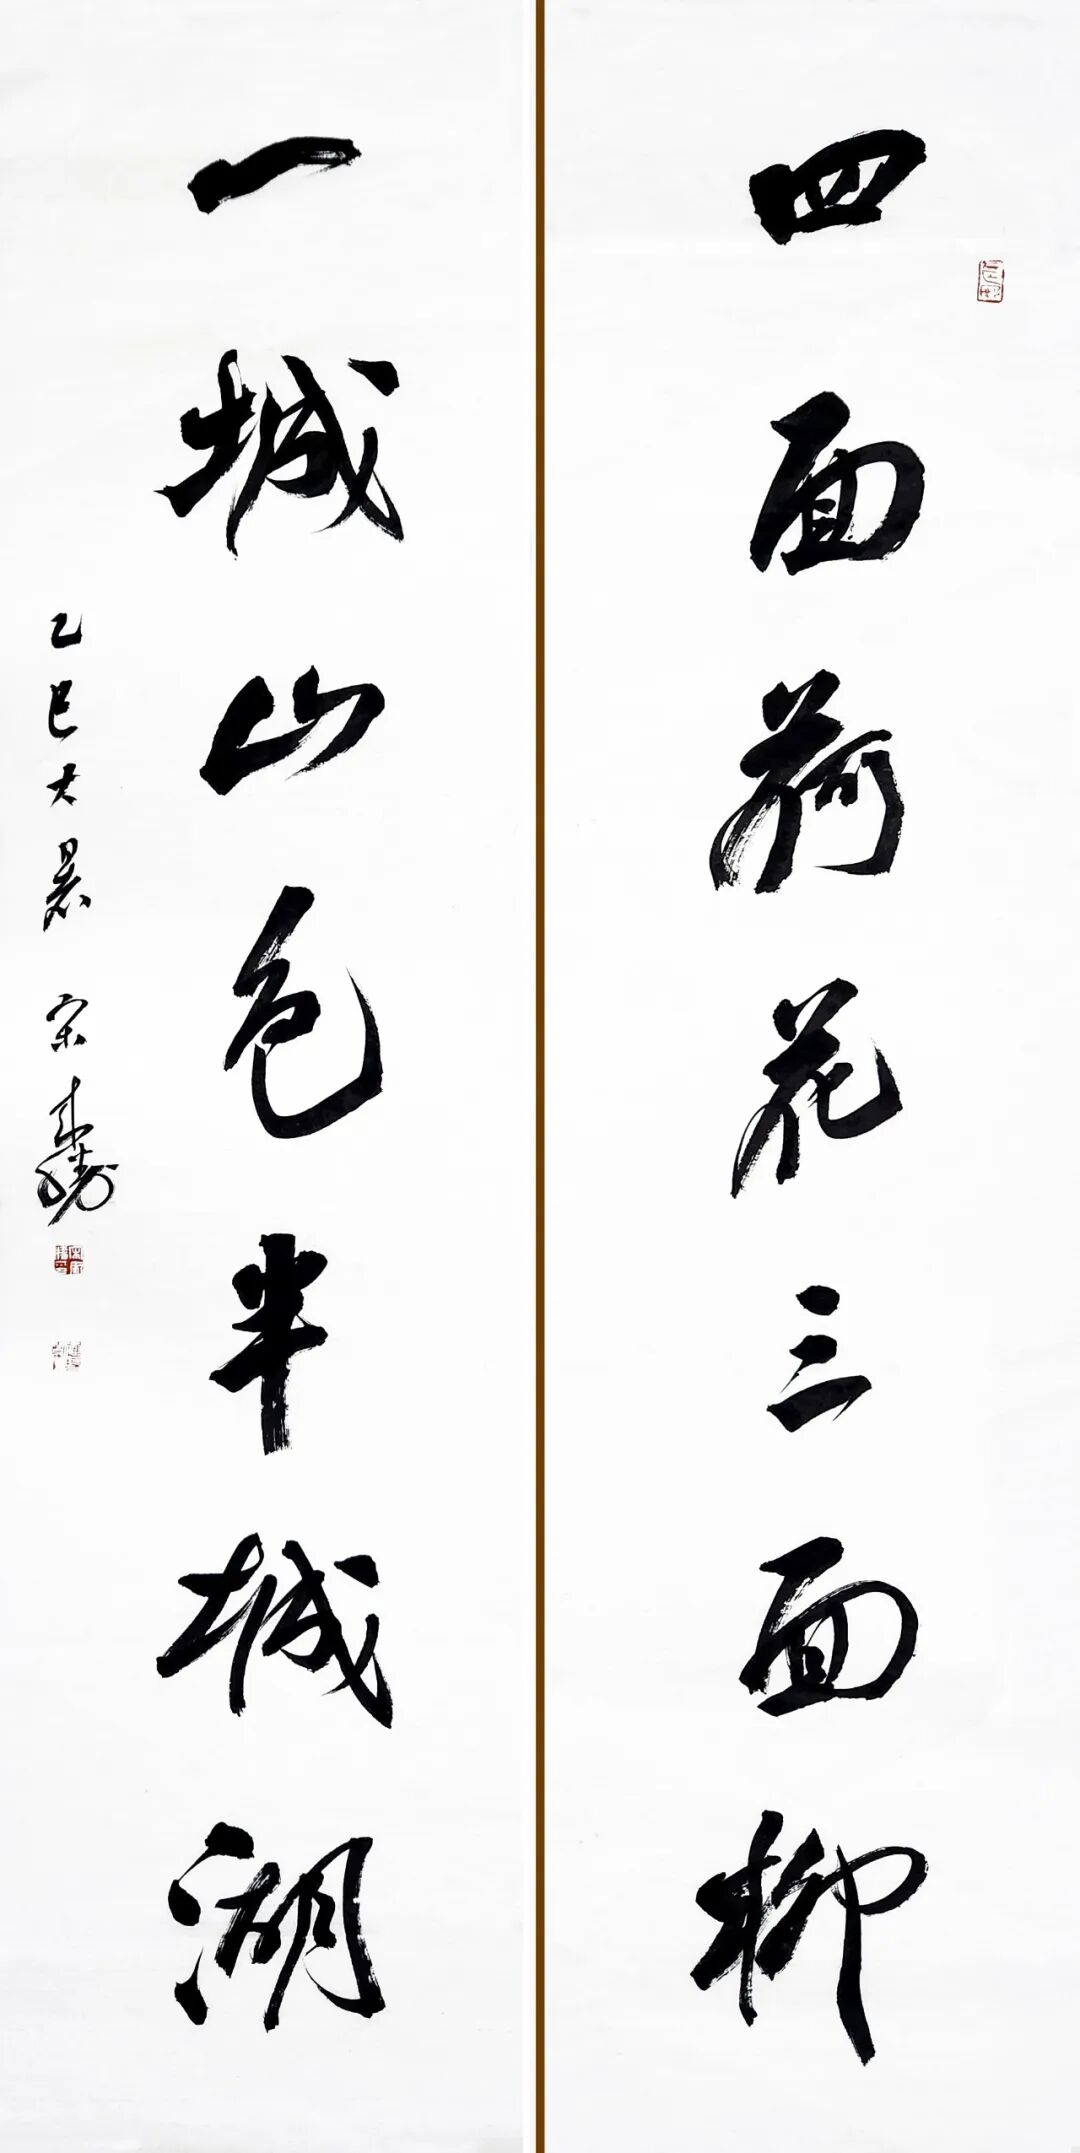 四面荷花三面柳
一城山色半城湖
乙巳大暑 宋来